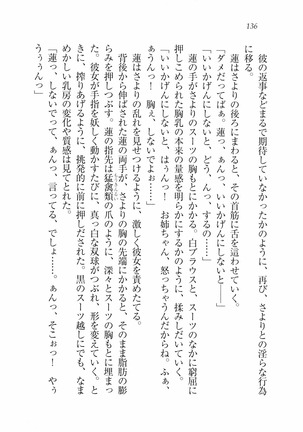 136
彼の返事などまるで期待していなかったかのように、再び、さよりとの淫らな行為
に移る。
　蓮はさよりの後ろにまわると、その首筋に舌を這わせていく。
「ダメだってばぁ。蓮っ、あんっ、いいかげんにしないと――」
「いいかげんにしないと、どう、んっ、するの……」
　蓮の手がさよりのスーツの胸もとにかかる。白ブラウスと、スーツのなかに窮屈に
押しこめられた胸乳の本来の量感を明らかにするかのように、揉みしだいていく。
「いいかげんにしないと、はぅんっ！　お姉ちゃん、怒っちゃうんだからね。ふぁ、
ぁうんっ！　胸ぇ、しないでよぉ……」
　蓮はさよりの乱れを見せつけるように、激しく彼女を責めたてる。
　背後から伸ばされた蓮の両手が、さよりの胸の先端にかかると、そのまま脂肪の膨
らみを押しつぶす。蓮の指先は猛禽類の爪のように、深々とスーツの胸もとに埋まっ
た。彼女が手指を妖しく動かすたびに、真っ白な双球がつぶれ、形を変えていく。と
きに、搾りあげるように、挑発的に前に押しだされた。黒のスーツ越しにでも、なま
めかしい乳房の変化や質感は見てとれた。
「蓮っ、しないでって、ぁんっ、言ってる、でしょ……。ぁんっ、そこぉっ！　やぅ
うぅんっ」